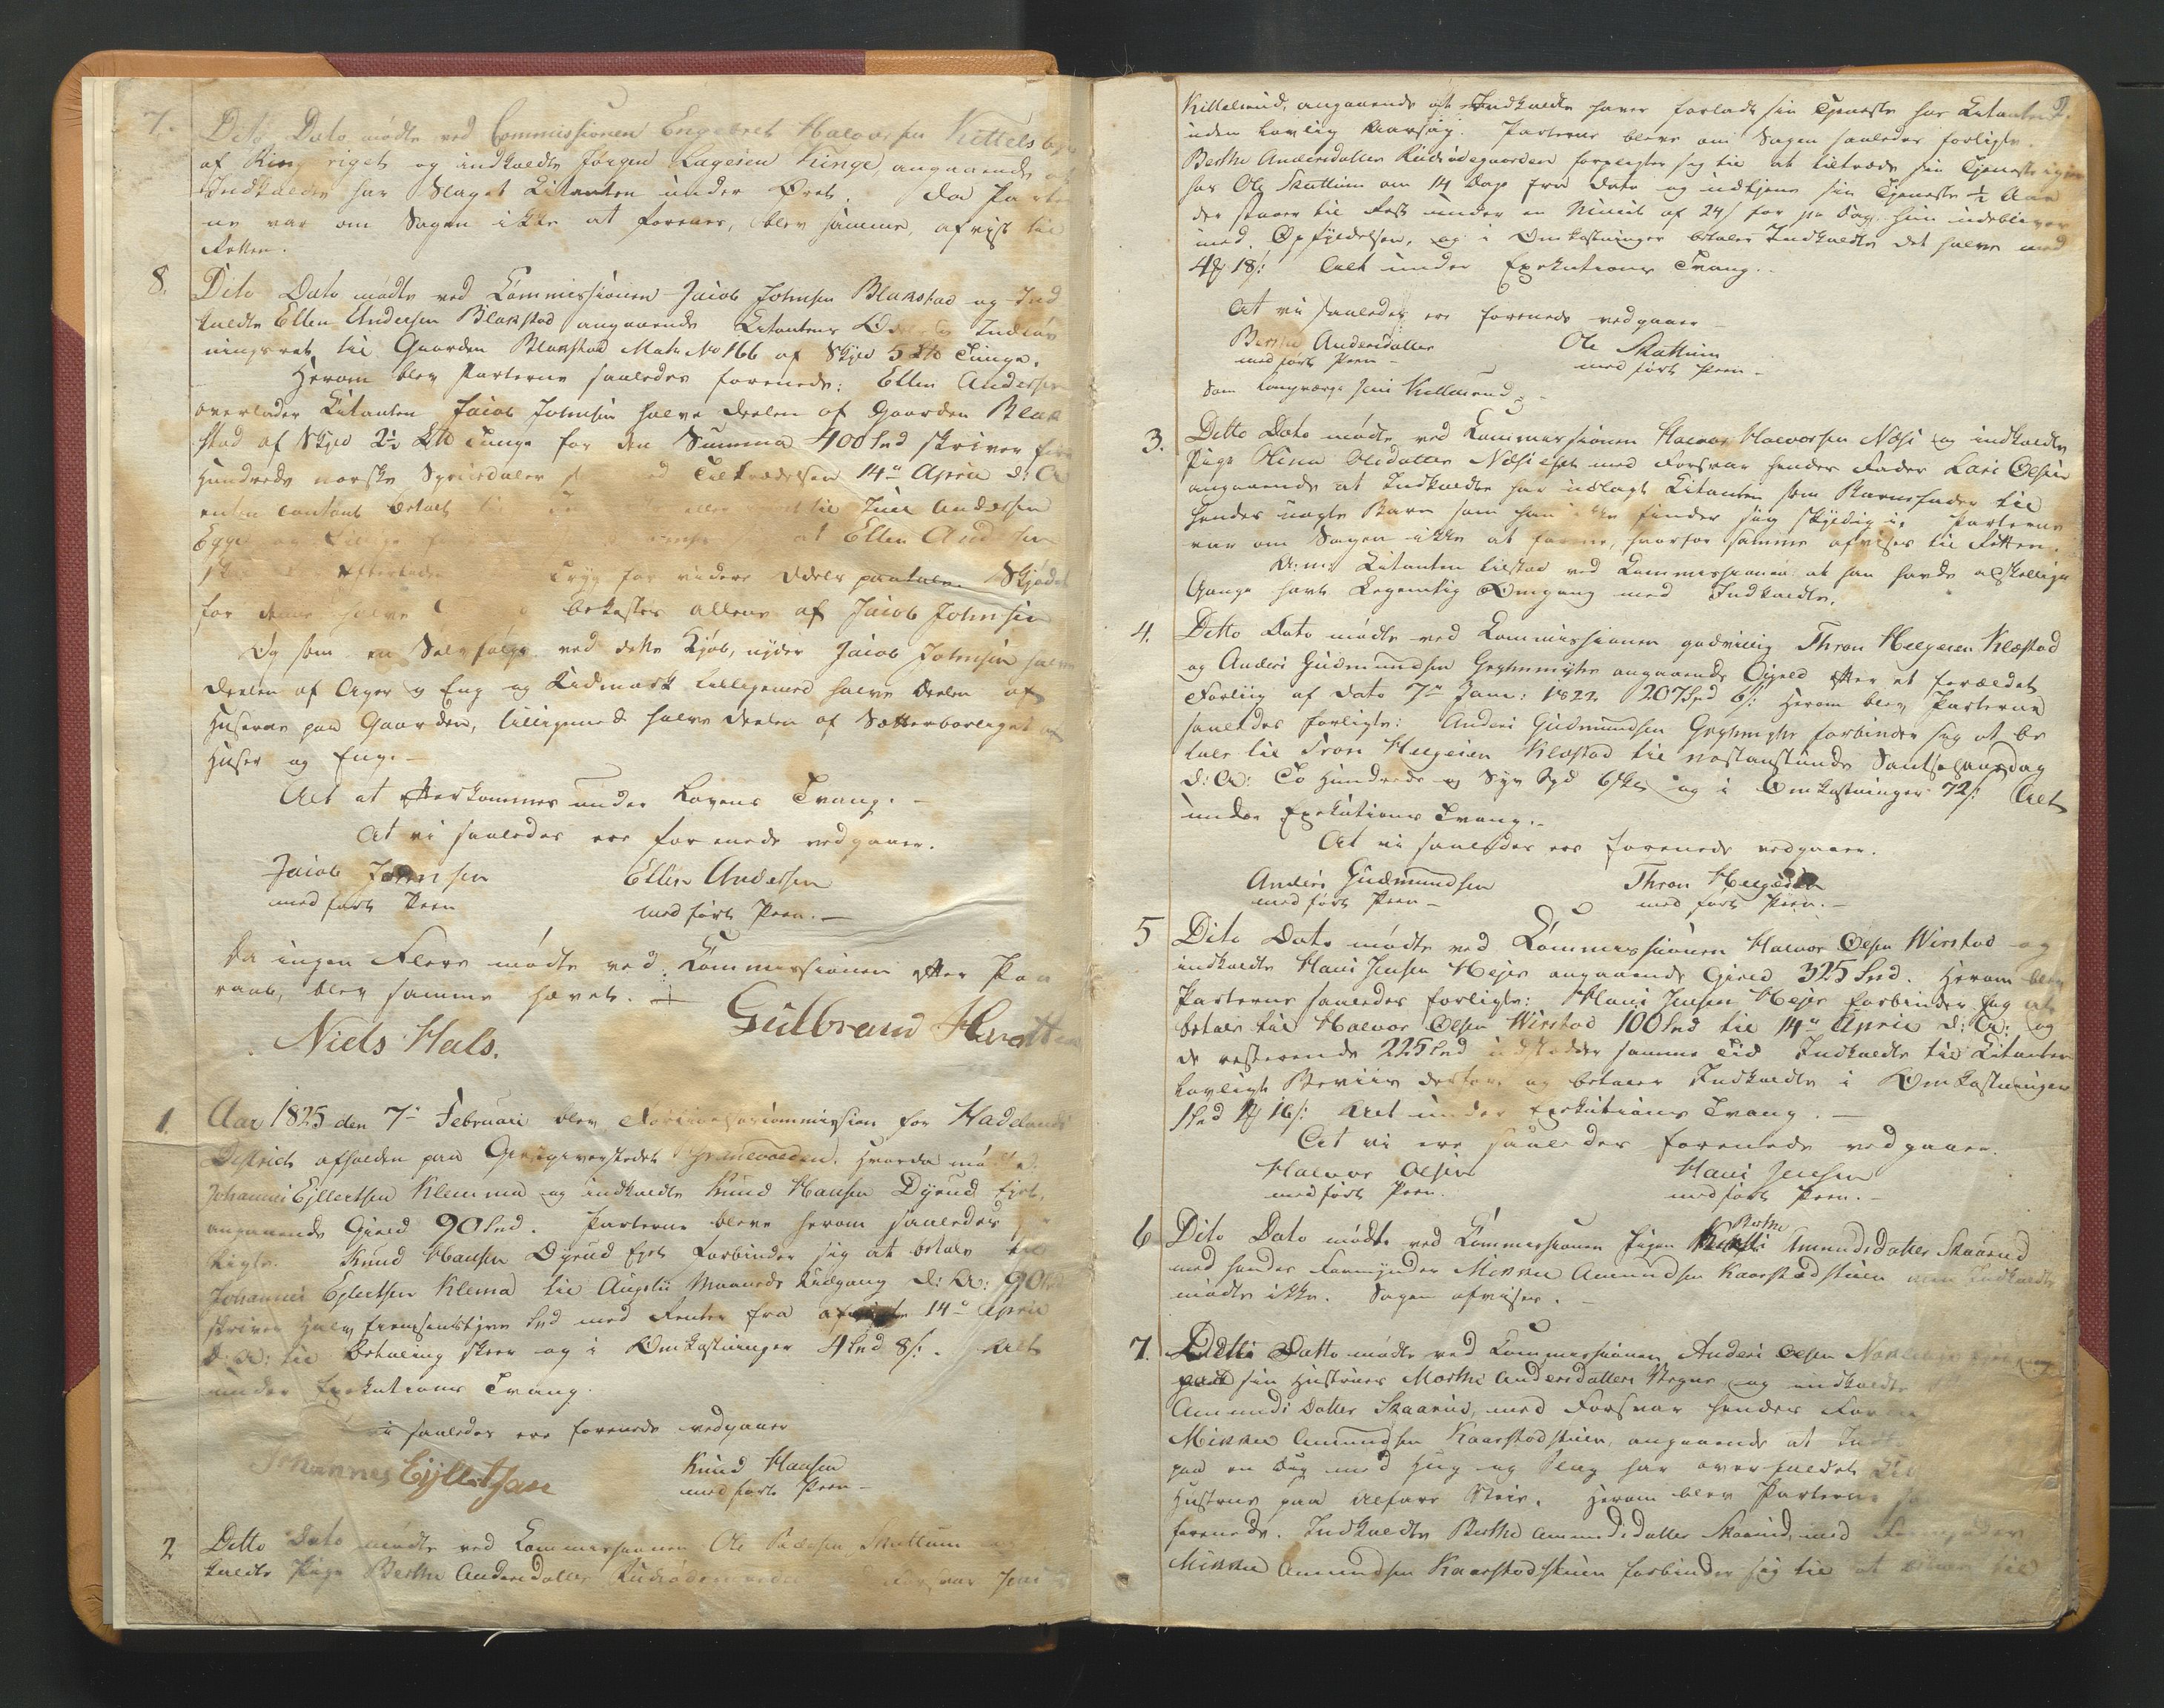 7. Dito Dato mødte ved Commissionen Engebret Halvorsen Kittels
af Ring riget og indkaldte Jørgen Lagesen Kinge, angaaende at
Indkaldte har Slaget Citanten under Øret. Da Parter
ne var om Sagen ikke at forene, blev samme, afvist til
Retten.
8. Dito Dato mødte ved Kommissionen Jacob Johnsen Blakstad og Ind
kaldte Ellen Andersen Blakstad angaaende Citantens Indløs
ningsret til Gaarden Blakstad Matr No 166 af Skyld 5 Tunge.
Herom blev Parterne saaledes forenede: Ellen Andersen
overlader Citanten Jacob Johnsen halve Deelen af Gaarden Blak
stad af Skyld 2½ Tunge for den Summa 400 Spd skriver fire
Hundrede norske Speciedaler ved Tiltrædelsen 14de April d: A
enten contant betalt eller til Juul Andersen
Egge og at Ellen Andersen
efterlader for videre paatale Skjødet
for denne halve bekostes allene af Jacob Johnsen
Og som en Selvfølge ved dette Kjøb, nyder Jacob Johnsen halve
Deelen af Ager og Eng og Udmark tilligemed halve Deelen af
Husene paa Gaarden, tilligemed halve Deelen af Sætterboeliget af
Huse og Eng. —
Alt at efterkommes under Lovens Tvang. —
At vi saaledes ere forenede vedgaaer.
Jacob Johnsen Ellen Andersen
med ført Peen med ført Peen. —
Da ingen Flere mødte ved Kommissionen efter Paa
raab, blev samme hævet. —
Niels Hals. Gulbrand
1. Aar 1825 den 7de Februari blev Forligelsescommission for Hadelands
District afholden paa Giestgiverstedet Granevolden. Hvorda mødte
Johannes Eillertsen Klemma og indkaldte Knud Hansen Dyrud Eje,
angaaende Gield 90 Spd. Parterne bleve herom saaledes for
ligte. Knud Hansen Dyrud Eje forbinder sig at betale til
Johannes Ejlertsen Klema til Augusti Maaneds Udgang d: A: 90 Spd
skriver Halvfemsenstyve Spd med Renter fra 14de April
d: A: til Betaling skeer og i Omkostninger 4 Spd 8 s. Alt
under Exekutions Tvang.
vi saaledes ere forenede vedgaaer
Johannes Eijllertsen Knud Hansen
med ført Peen —
2 Ditto Dato mødte ved Kommissionen Ole Pedersen Skuttum
kaldte Pige Berthe Andersdatter Forsvar Jens
Killelund, angaaende at Indkaldte haver forladt sin Tjeneste hos Citanten
uden lovlig Aarsag. Parterne bleve om Sagen saaledes forligte.
Berthe Andersdatter Rudsødegaarden forpligter sig til at tiltræde sin Tjeneste igjen
hos Ole Skuttum om 14 Dage fra Dato og udtjene sin Tjeneste ½ Aar
der staaer til Rest under en Mulct af 24 s for pr Dag hun udebliver
med Opfyldelsen, og i Omkostninger betaler Indkaldte det halve med
18 s: Alt under Exekutions Tvang.
At vi saaledes ere forenede vedgaaer
Berthe Andersdatter Ole Skuttum
med ført Peen — med ført Peen —
Som Laugværge Jens Killelund
3. Ditto Dato mødte ved Kommissionen Halvor Halvorsen Næss og indkaldte
Pige Stina Olsdatter Næss med Forsvar hendes Fader Lars Olsen
angaaende at Indkaldte har udlagt Citanten som Barnefader til
hendes uægte Barn som han ikke finder sig skyldig i. Parterne
var om Sagen ikke at forene, hvorfor samme afvises til Retten.
A: m: Citanten tilstod ved Kommissionen at han havde adskellige
Gange havt Legemlig Omgang med Indkaldte.
4. Ditto Dato mødte ved Kommissionen godvillig Thron Helgesen Klæstad
og Anders Gudmundsen angaaende Gjæld efter et forældet
Forliig af Dato 7de Janu: 1822 207 Spd 6 s: Herom blev Parterne
saaledes forligte: Anders Gudmundsen forbinder sig at be
tale til Tron Helgesen Klæstad til næstanstunde Sanctehansdag
d: A: To Hundrede og Syv Spd og i Omkostninger 72 s: Alt
under Exekutions Tvang. —
At vi saaledes ere forenede vedgaaer.
Anders Gudmundsen Thron Helgesen
med ført Peen — med ført Peen. —
5 Dito Dato mødte ved Kommissionen Halvor Olsen Wirstad og
indkaldte Hans Jensen Hejer angaaende Gjeld 325 Spd. Herom blev
Parterne saaledes forligte: Hans Jensen Hejer forbinder sig at
betale til Halvor Olsen Wirstad 100 Spd til 14de April d: A: og
de resterende 225 Spd udstædder samme Tid Indkaldte til Citanten
lovligt Beviis derfor, og betaler Indkaldte i Omkostninger
1 Spd 16 s: Alt under Exekutions Tvang. —
At vi ere saaledes forenede vedgaaer.
Halvor Olsen Hans Jensen
med ført Peen. med ført Peen. —
6 Dito Dato mødte ved Kommissionen Pigen Berthe Amundsdatter Skaarud
med hendes Formynder Mikkel Amundsen Kaarstadstuen men Indkaldte
mødte ikke. Sagen afvises. —
7. Ditto Datto mødte ved Kommissionen Anders Olsen
paa sin Hustrues Marthe Andersdatters Vegne og indkaldte
Amunds Datter Skaarud, med Forsvar hendes
Mikkel Amundsen Kaarstadstuen, angaaende at
paa en Dag med Hug og Slag har overfaldet
Hustrue paa alfare Vei. Herom blev Parterne
forenede. Indkaldte Berthe Amundsdatter Skaarud, med Formynder
Mikkel Amundsen Kaarstadstuen forbinder sig til at til